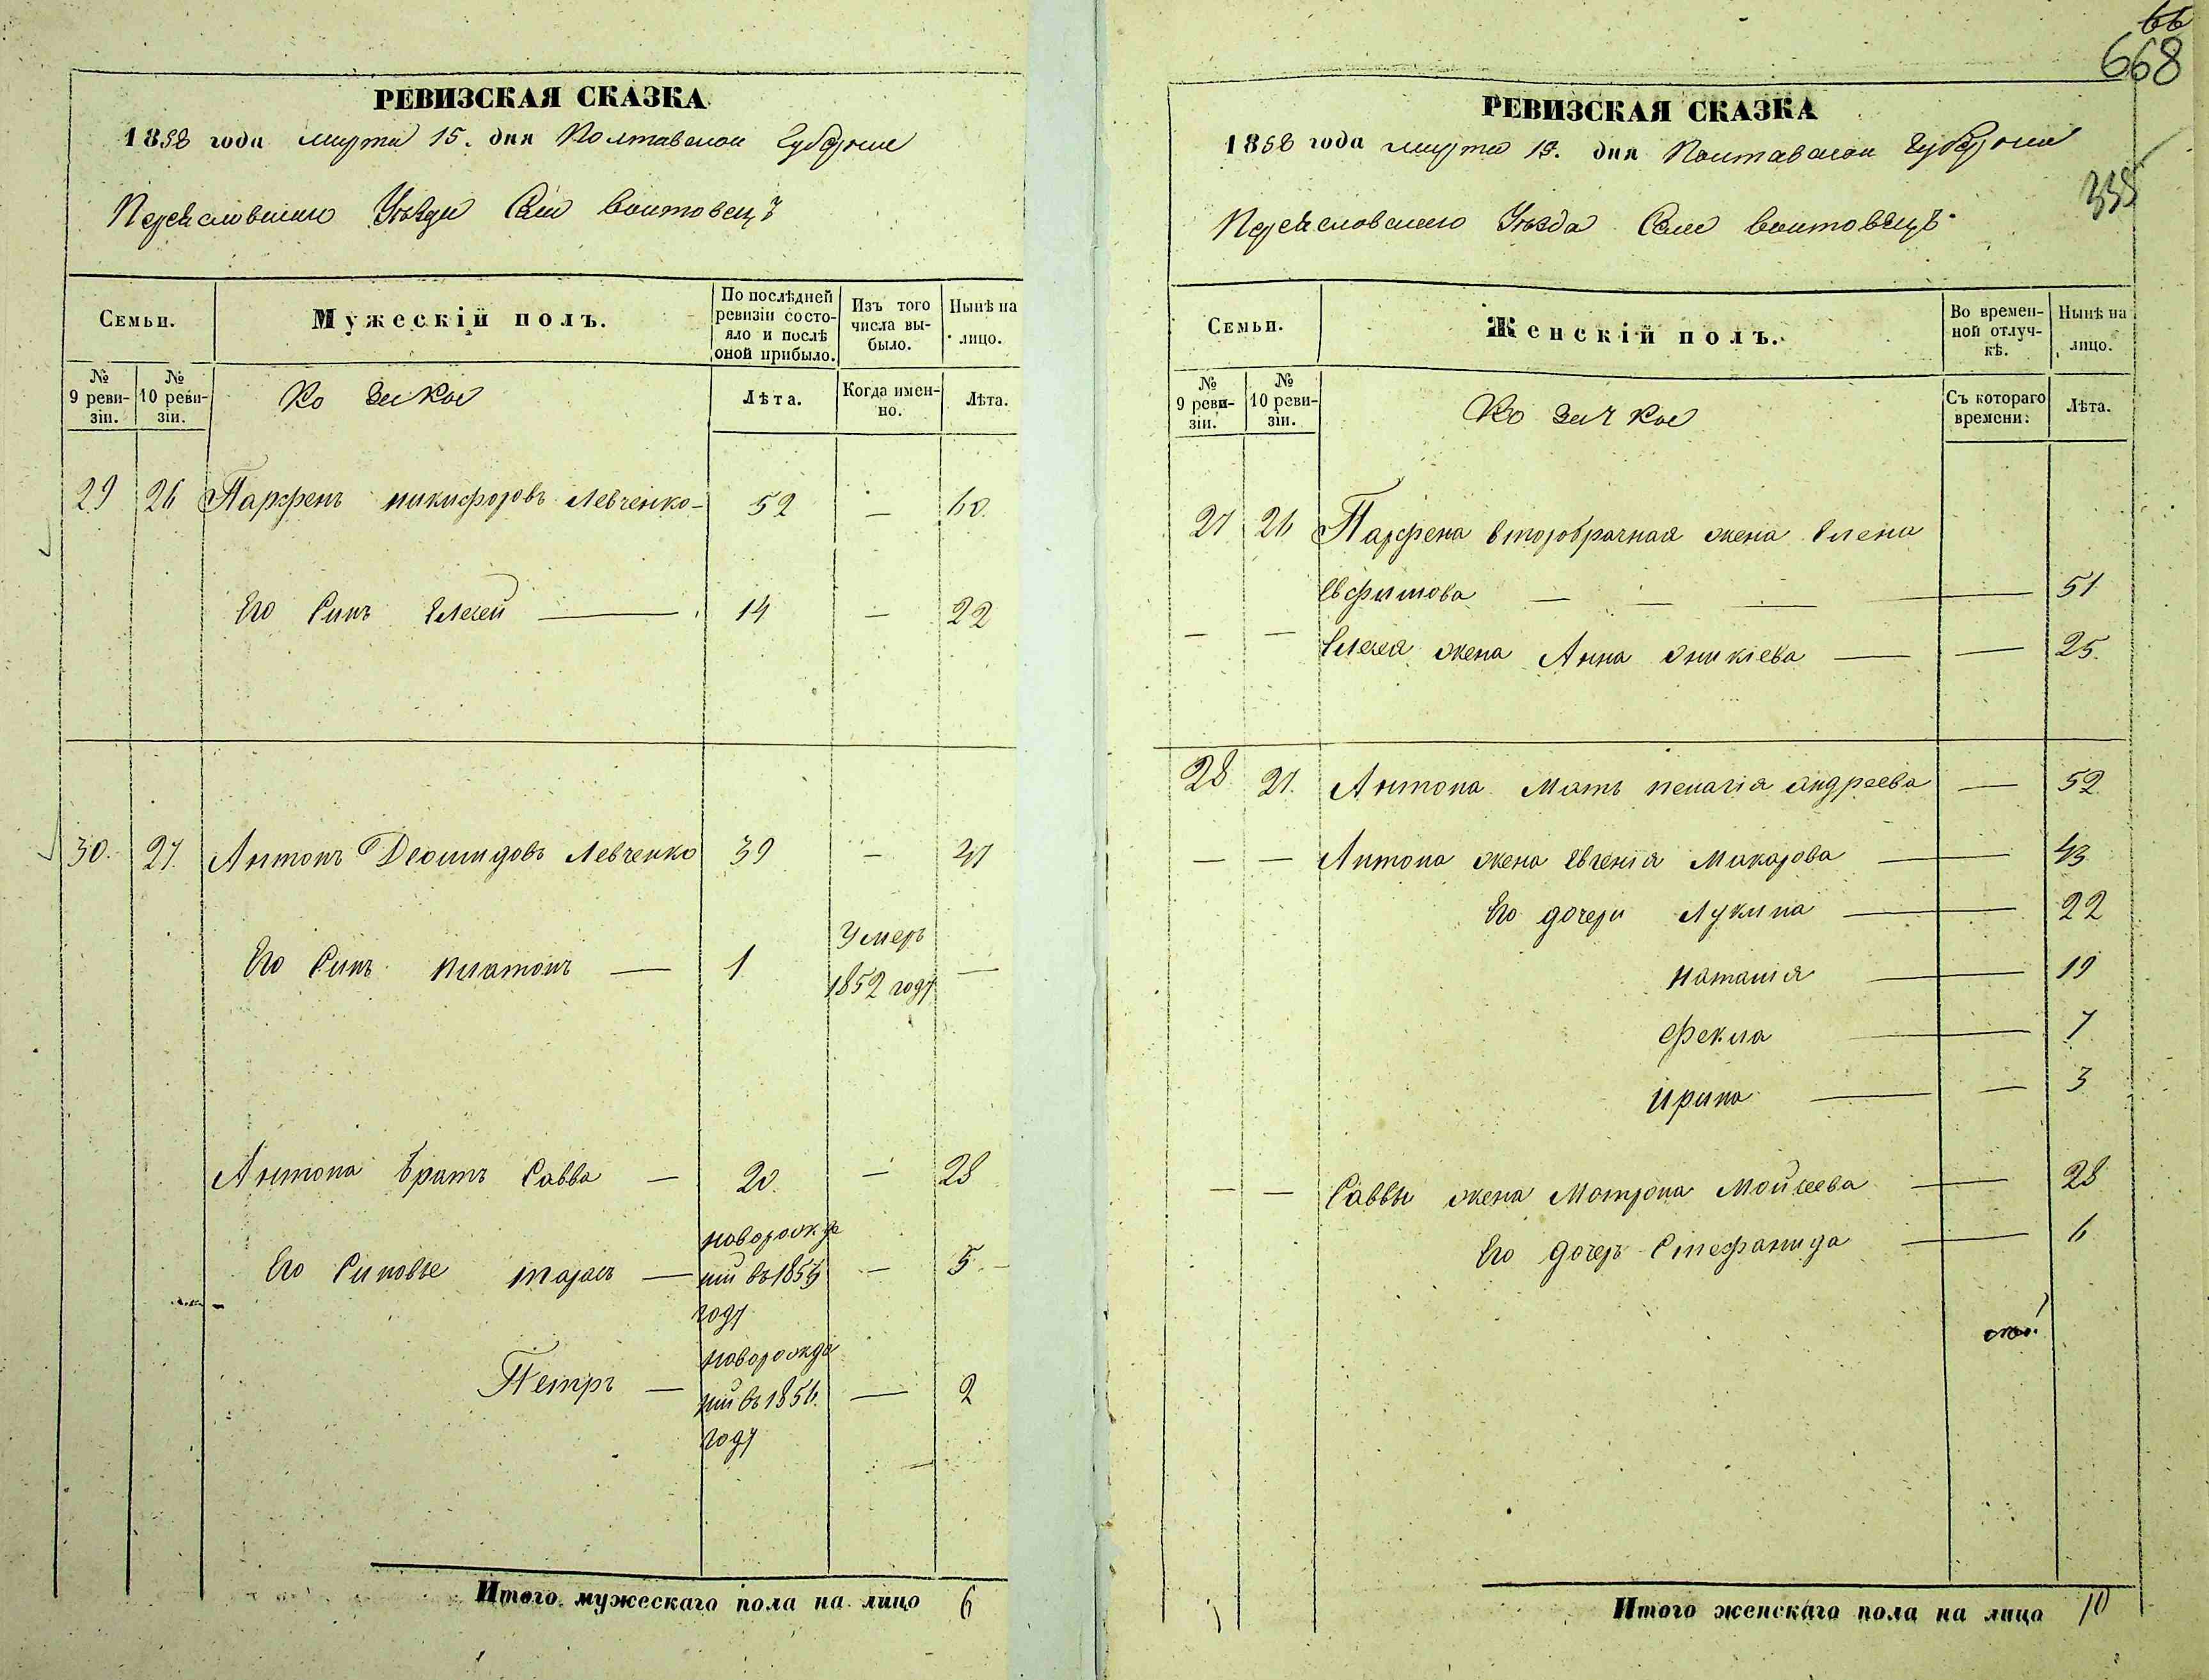 РЕВИЗСКАЯ СКАЗКА
1858 года марта 15. дня Полтавской Губернии
Переясловскаго Уѣзда Села Воитовецъ
Семьи.
Мужескій полъ.
По послѣдней ревизіи состояло и послѣ оной прибыло.
Изъ того числа выбыло.
Нынѣ на лицо.
№ 9 ревизіи.
№ 10 ревизіи.
Козаки
Лѣта.
Когда именно.
Лѣта.
29 26 Парфенъ никифоровъ Левченко 52 — 60.
Его Синъ Елисей — 14 — 22
30. 27. Антонъ Деомидовъ Левченко 39 — 47
Его Синъ платонъ — 1 Умеръ 1852 году —
Антона братъ Савва — 20. — 28
Его Синовье тарасъ — новорожде
ній въ 1853 — 5 —
году
Петръ — новорожде
ній въ 1856. — 2
году
Итого мужескаго пола на лицо 6
668
335
РЕВИЗСКАЯ СКАЗКА
1858 года марта 15. дня Полтавской Губернии
Переясловскаго Уѣзда Села Воитовецъ
Семьи.
Женскій полъ.
Во временной отлучкѣ.
Нынѣ на лицо.
№ 9 ревизіи.
№ 10 ревизіи.
Козачки
Съ котораго времени.
Лѣта.
27 26 Парфена второбрачная жена Елена
Евфимова — — — — 51
— — Елисея жена Анна Оникіева — — 25.
28. 27. Антона Мать пелагія андреева — 52.
— — Антона жена Евгенія Макарова — 43
Его дочери Лукина — 22
наталія — 19
Фекла — 7
Ирина — — 3
— — Саввы жена Мотрона Мойсеева — 28
Его дочерь Стефанида — 6
Итого женскаго пола на лицо 10